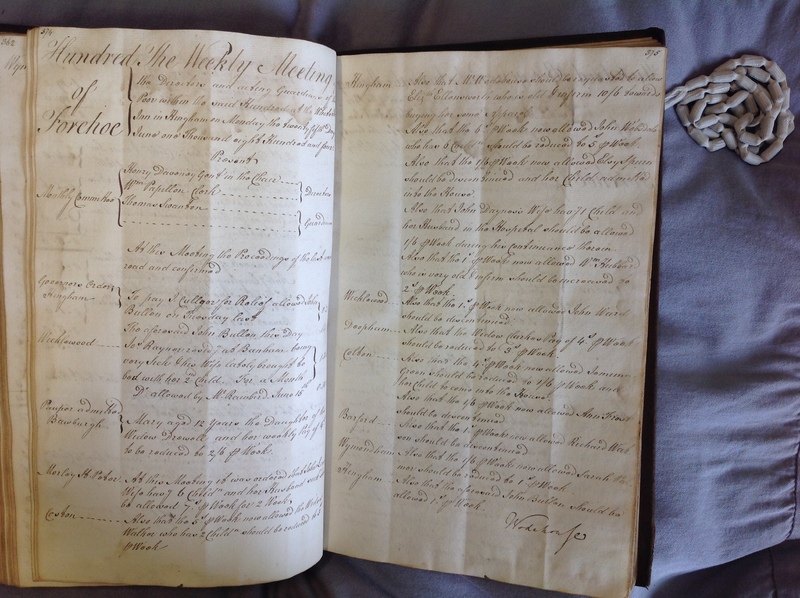 362
374
Hundred
of
Forehoe
The Weekly Meeting
the Directors and acting Guardians
Poor within the said Hundred at the
Inn in Hingham on Monday the twenty fifth Day
June one Thousand eight Hundred and four
Present
Henry Davaney Gent in the Chair
Wm Papillon Clerk
Thomas Swanton
Monthly Committee
Directors
Guardian
At this Meeting the Proceedings of the last were
read and confirmed
Governors Orders
Hingham
To pay J. for Relief allowed John
Bullon on Tuesday last
The aforesaid John Bullon this Day
Wicklewood
Jos Raynor at Banham being
very Sick & his Wife lately brought to
bed with her 2nd Child. For a Month
Do allowed by Mr June 15th
Pauper admitted
Bawburgh
Mary aged 12 years the Daughter of the
Widow and her weekly Pay of
to be reduced to 2/6 p Week
Morley St Peter
At this Meeting it was ordered that John
Wife has 6 Childn and her Husband
be allowed 7s p Week for 2 Weeks
Coston
Also that the 5s p Week now allowed the Widow
Walker who has 2 Childn should be reduced to
p Week
375
Hingham
Also that Mr Wodehouse should be requested to allow
Elizth Ellensworth who is old & infirm 10/6 towards
buying her some
Also that the 6s p Week now allowed John
who has 6 Childn should be reduced to 5s p Week
Also that the 1/6 p Week now allowed Eliz
should be discontinued and her Child admitted
into the House
Also that John Daynes's Wife has 1 Child and
her Husband in the Hospital should be allowed
1/6 p Week during his continuance therein
Also that the p Week now allowed Wm Hubbard
who is very old & infirm should be increased to
2s p Week
Wicklewood
Also that the 1s p Week now allowed John Ward
should be discontinued
Deopham
Also that the Widow Clarkes Pay of 4s p Week
should be reduced to 3s p Week
Colton
Also that the 4s p Week now allowed
Green should be reduced to 1/6 p Week and
her Child to come into the House
Also that the 1/6 p Week now allowed Ann
should be discontinued
Barford
Also that the 1s p Week now allowed Richard
son should be discontinued
Wymondham
Also that the 1/6 p Week now allowed Sarah
mor should be reduced to 1s p Week
Hingham
Also that the aforesaid John Bullon should be
allowed 1s p Week
Wodehouse